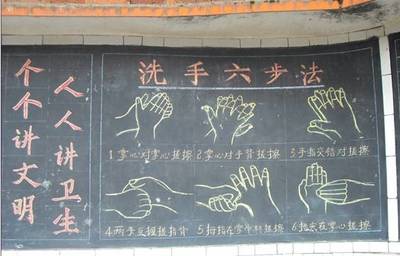 人人讲卫生
个个讲文明
洗手六步法
1掌心对掌心搓擦
2掌心对手背搓擦
3手指交错对搓擦
4两手互握搓指背
5拇指在掌中转搓擦
6指尖在掌心搓擦